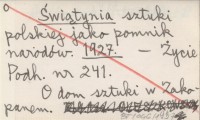 Świątynia sztuki
polskiej jako pomnik
narodów. 1927. - Życie
Podh. nr 241.
O dom sztuki w Zako-
panem.